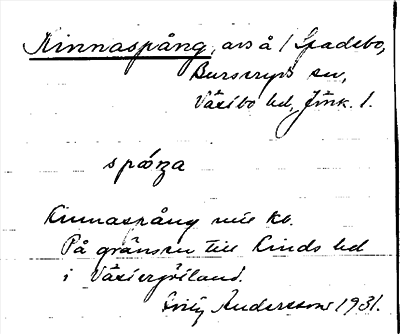 Kinnaspång, avs å 1 Spadebo,
Burseryds sn,
Västbo hd, Jönk. l.
spåŋa
Kinnaspång utt. kb.
På gränsen till Kinds hd
i Västergötland.
Andersson 1931.